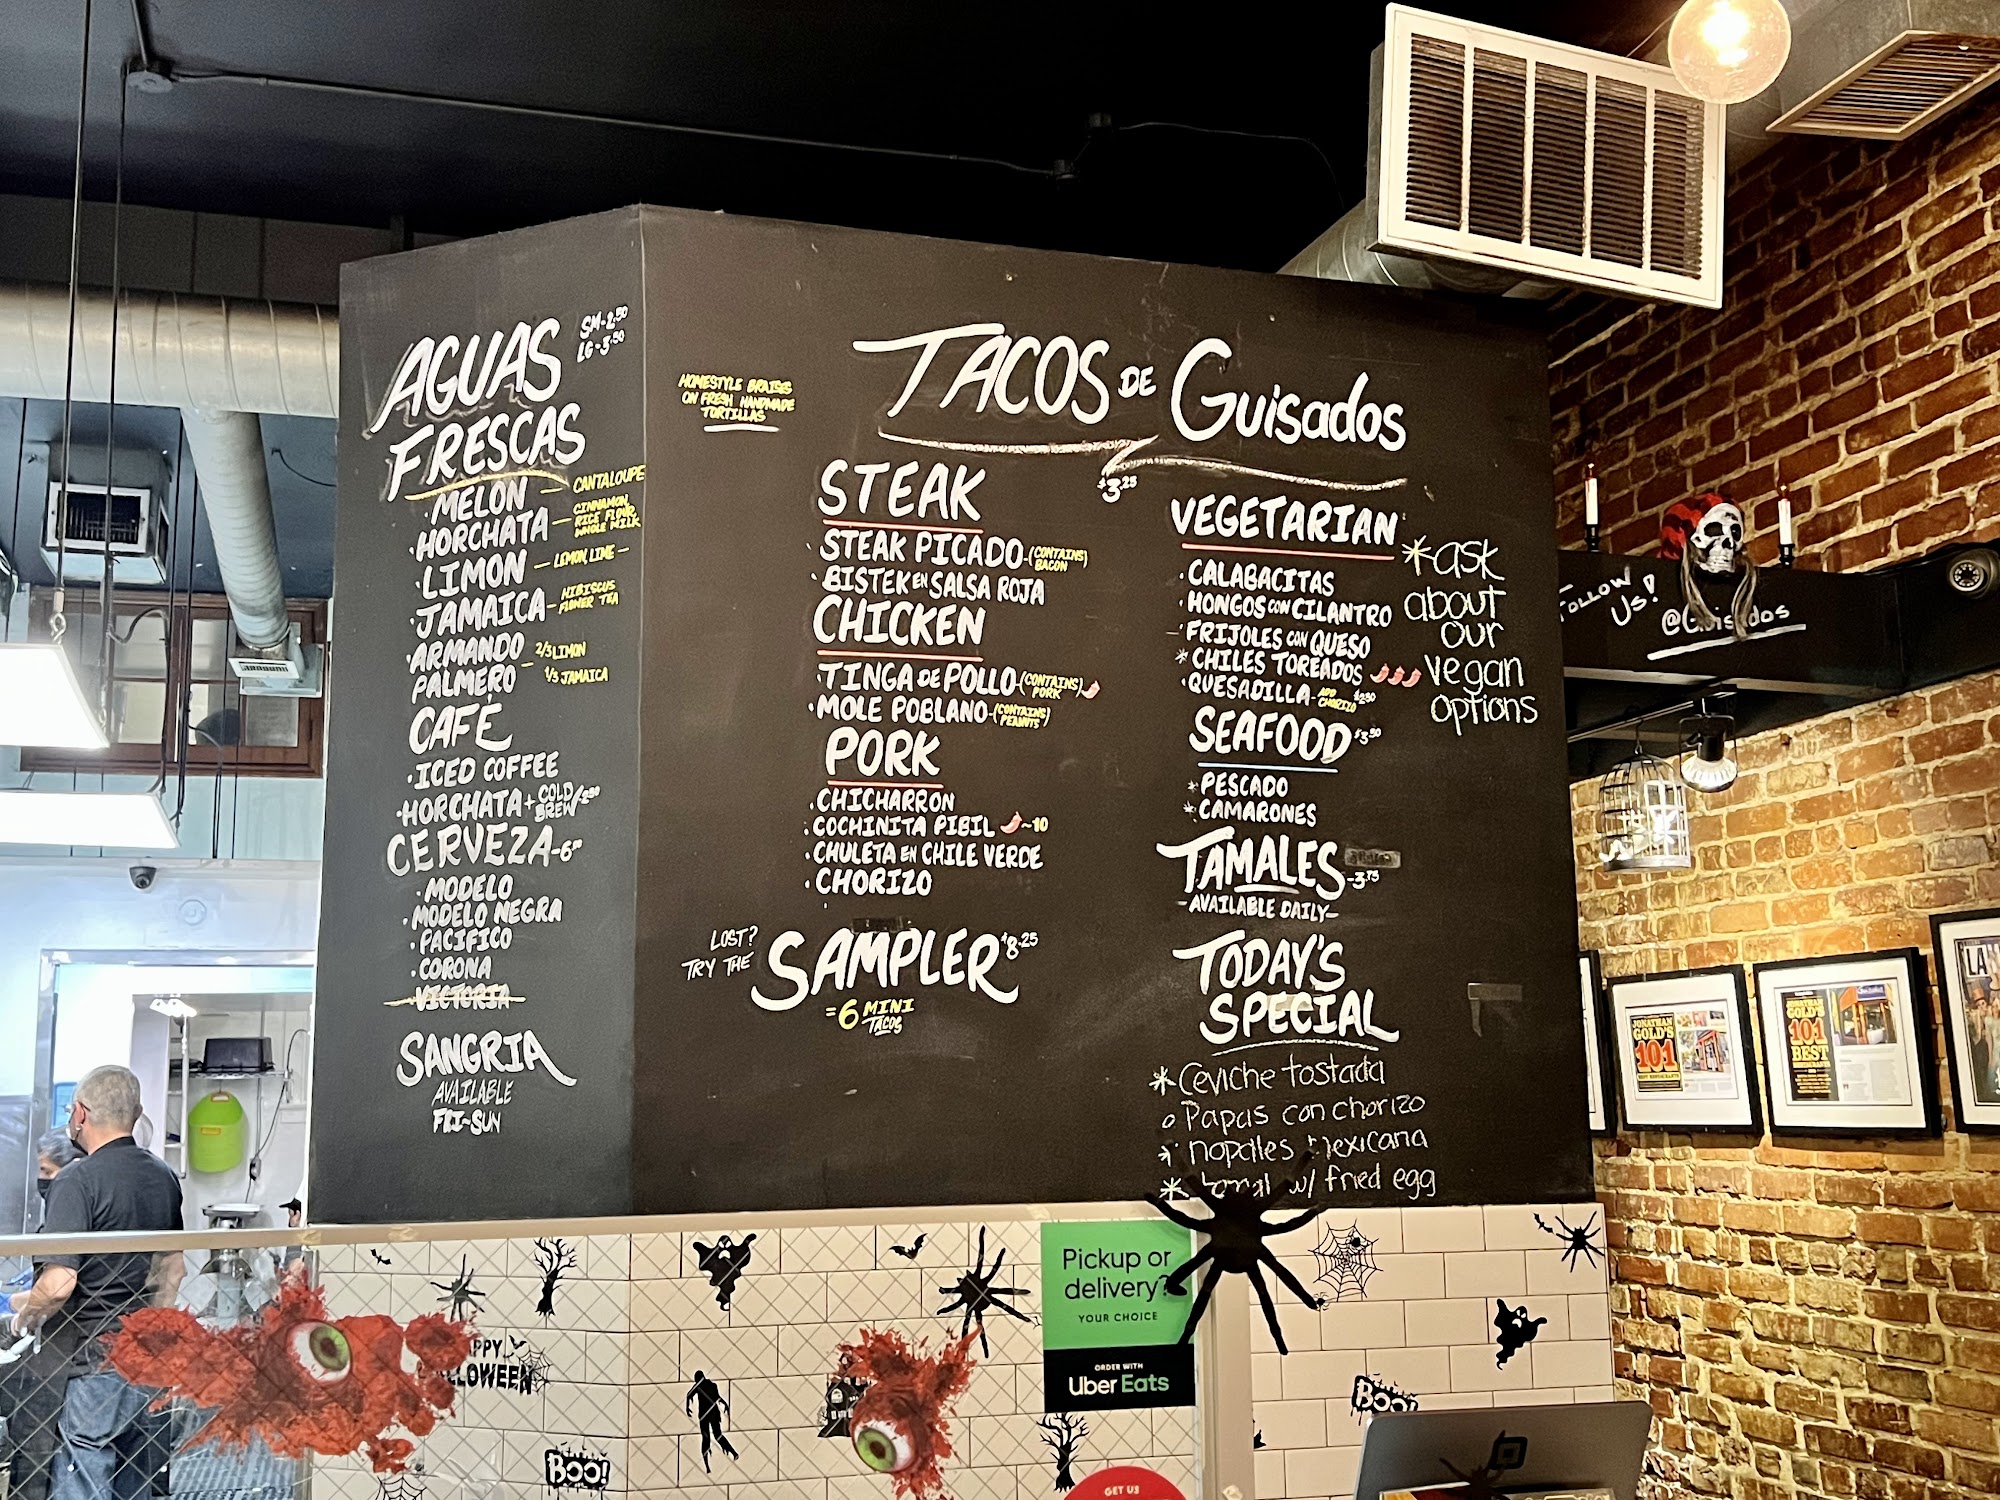 AGUAS
FRESCAS
SM-2.50
LG-3.50
· MELON — CANTALOUPE
· HORCHATA — CINNAMON, RICE FLOUR, WHOLE MILK
· LIMON — LEMON, LIME —
· JAMAICA — HIBISCUS FLOWER TEA
· ARMANDO PALMERO — 2/3 LIMON 1/3 JAMAICA
CAFE
· ICED COFFEE
· HORCHATA + COLD BREW
CERVEZA
· MODELO
· MODELO NEGRA
· PACIFICO
· CORONA
· VICTORIA
SANGRIA
AVAILABLE
FRI-SUN
HOMESTYLE BRAISES
ON FRESH HANDMADE
TORTILLAS
TACOS DE GUISADOS
$3.25
STEAK
· STEAK PICADO - (CONTAINS BACON)
· BISTEK EN SALSA ROJA
CHICKEN
· TINGA DE POLLO - (CONTAINS PORK)
· MOLE POBLANO - (CONTAINS PEANUTS)
PORK
· CHICHARRON
· COCHINITA PIBIL ~10
· CHULETA EN CHILE VERDE
· CHORIZO
LOST?
TRY THE SAMPLER $8.25
= 6 MINI TACOS
VEGETARIAN
· CALABACITAS
· HONGOS CON CILANTRO
- FRIJOLES CON QUESO
* CHILES TOREADOS
· QUESADILLA - ADD CHORIZO
*ask
about
our
vegan
options
SEAFOOD $3.50
* PESCADO
* CAMARONES
TAMALES -3.75
-AVAILABLE DAILY-
TODAY'S
SPECIAL
* Ceviche tostada
o Papas con chorizo
* nopales Mexicana
* w/ fried egg
FOLLOW
US!
@Guisados
JONATHAN
GOLD'S
101
BEST RESTAURANTS
JONATHAN
GOLD'S
101
BEST
LA
HAPPY
HALLOWEEN
BOO!
Pickup or
delivery?
YOUR CHOICE
ORDER WITH
Uber Eats
BOO!
GET US